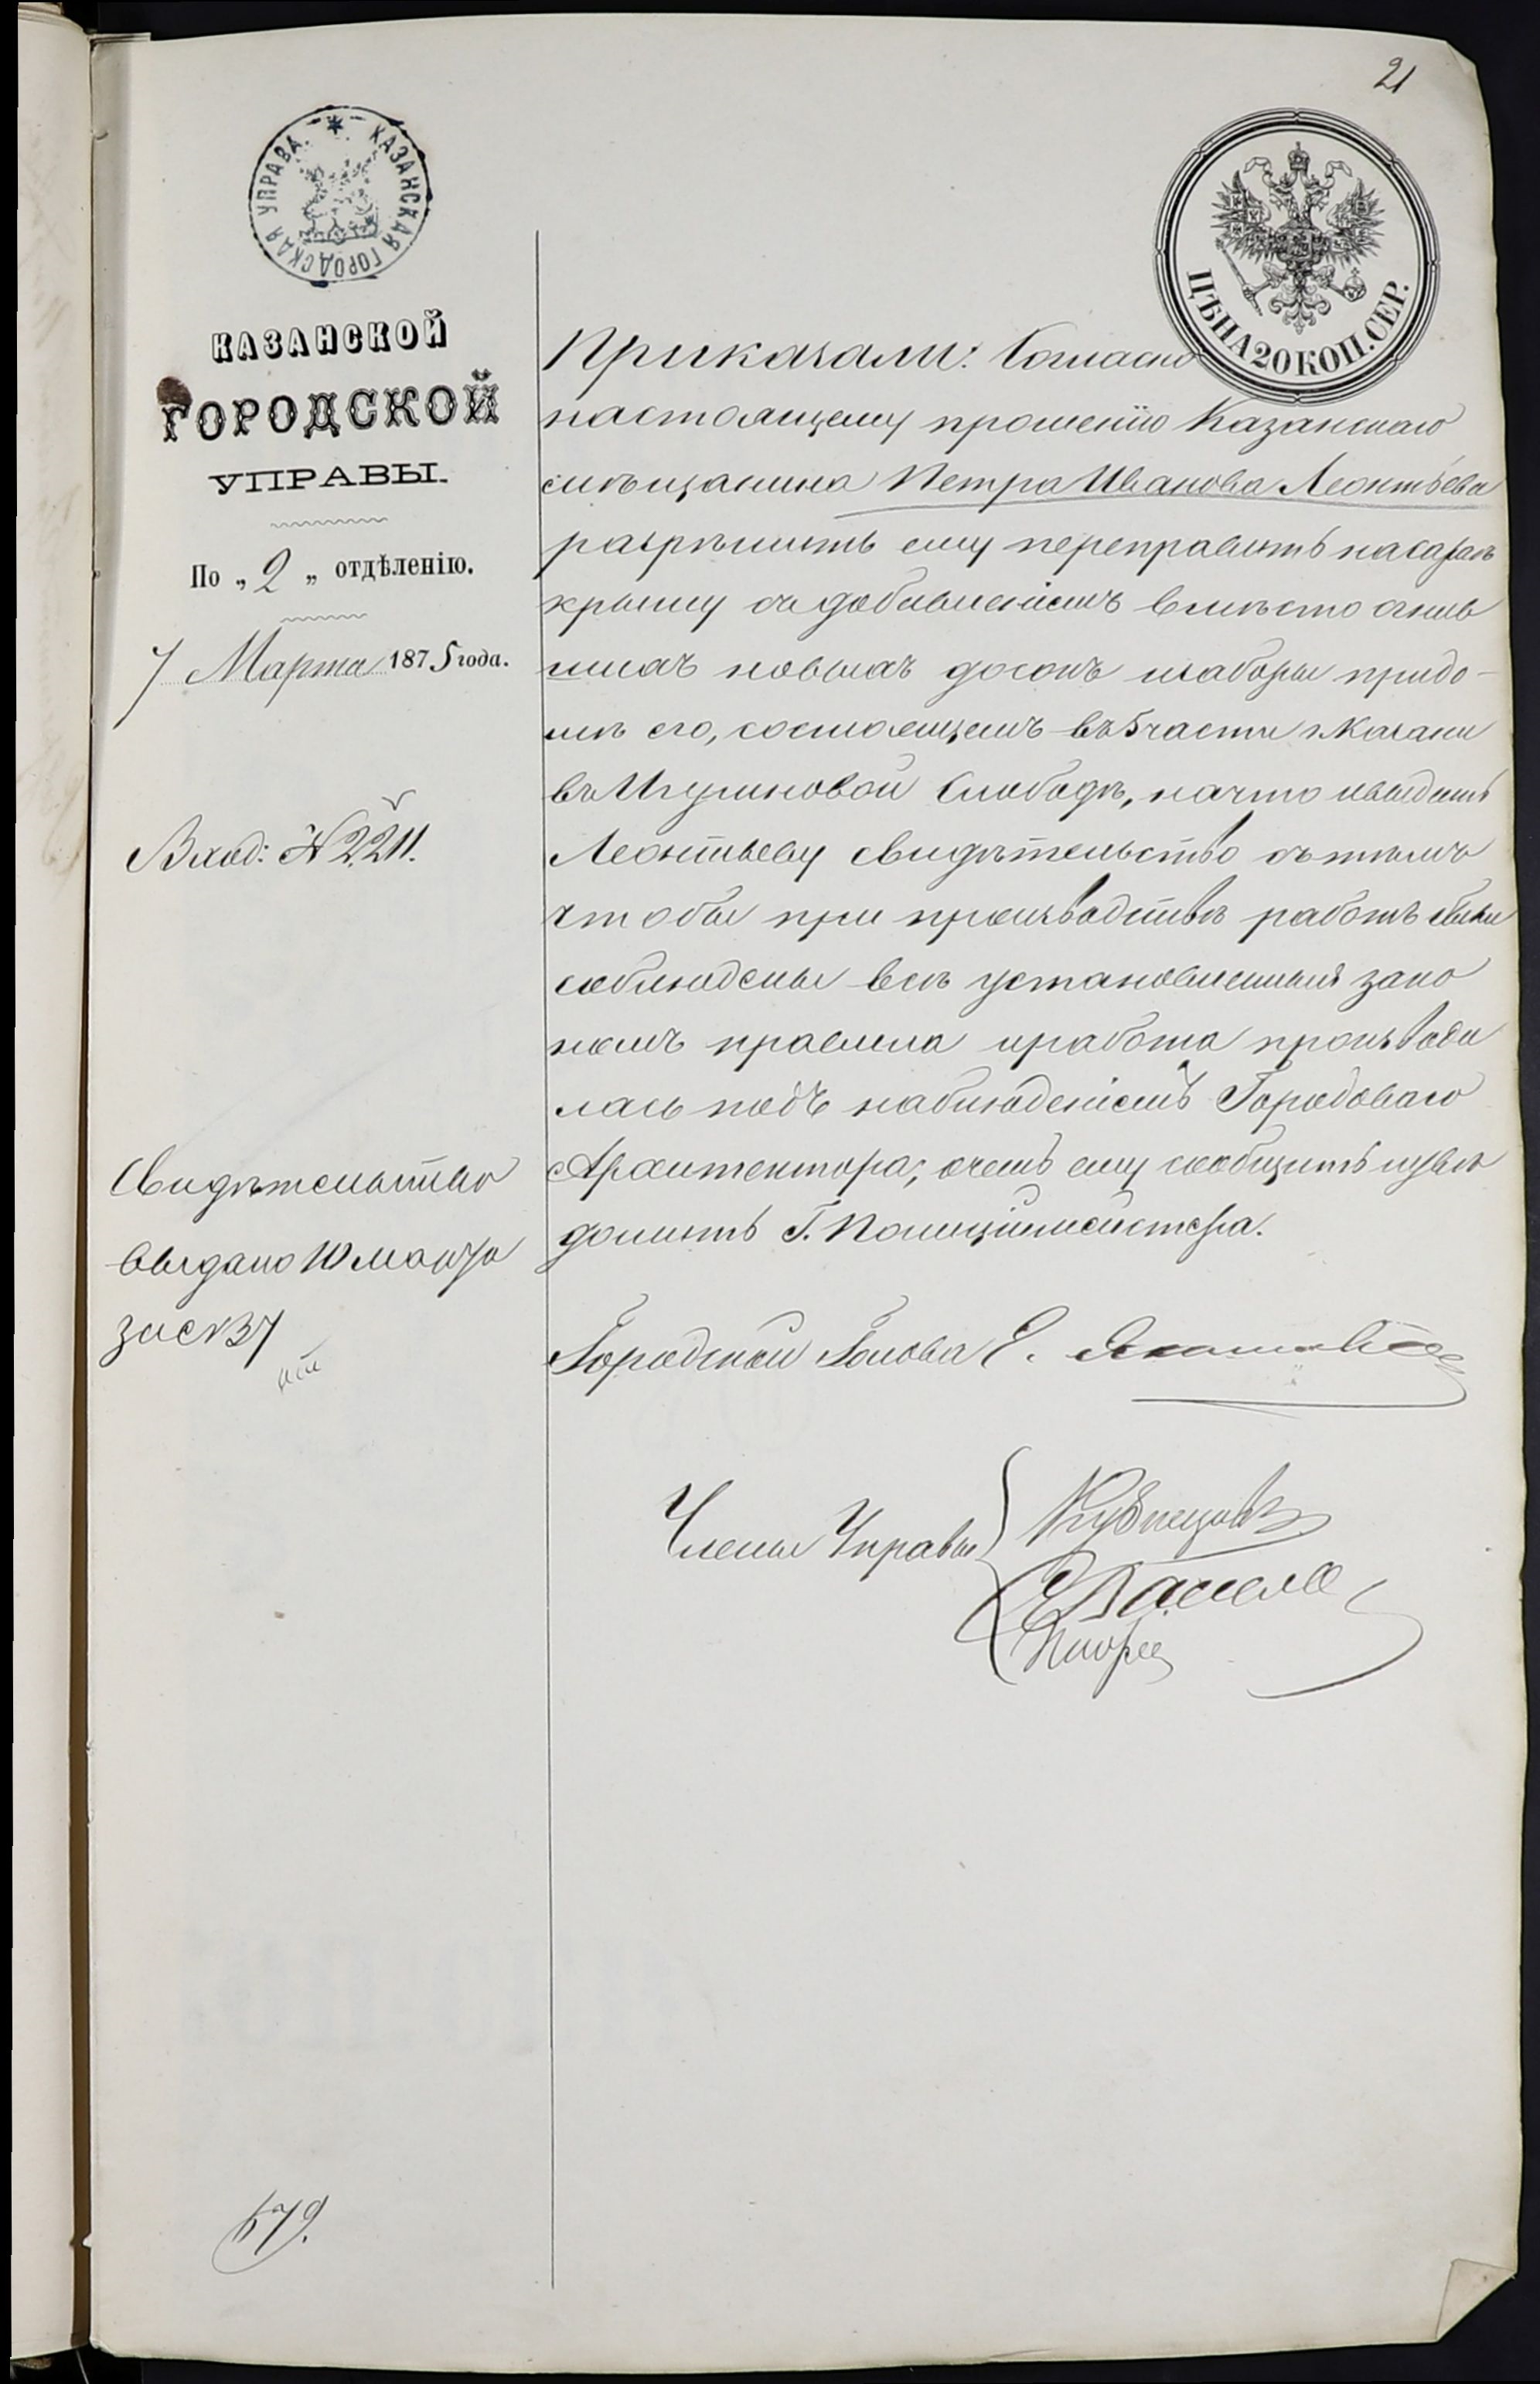 21
КАЗАНСКАЯ ГОРОДСКАЯ УПРАВА
ЦѢНА 20 КОП. СЕР.
КАЗАНСКОЙ
ГОРОДСКОЙ
УПРАВЫ.
По „2„ отдѣленію.
7 Марта 1875 года.
Вход: № 2211.
Свидѣтельство
выдано 10 марта
за № 37
579.
Приказали: Согласно
настоящему прошенію Казанскаго
мѣщанина Петра Иванова Леонтьева
разрѣшить ему переправить на сараѣ
крышу съ добавленіемъ вмѣсто сгнив
шихъ новыхъ досокъ и заборы при до-
мѣ его, состоящемъ въ 5 части г. Казани
въ Игумновой Слободѣ, на что и выдать
Леонтьеву свидѣтельство съ тѣмъ
чтобы при производствѣ работъ были
соблюдены всѣ установленныя зако
номъ правила и работа производи
лась подъ наблюденіемъ Городоваго
Архитектора; о чемъ ему сообщить и увѣ
домить Г. Полиціймейстера.
Городской Голова Е.
Члены Управы
Кузнецовъ